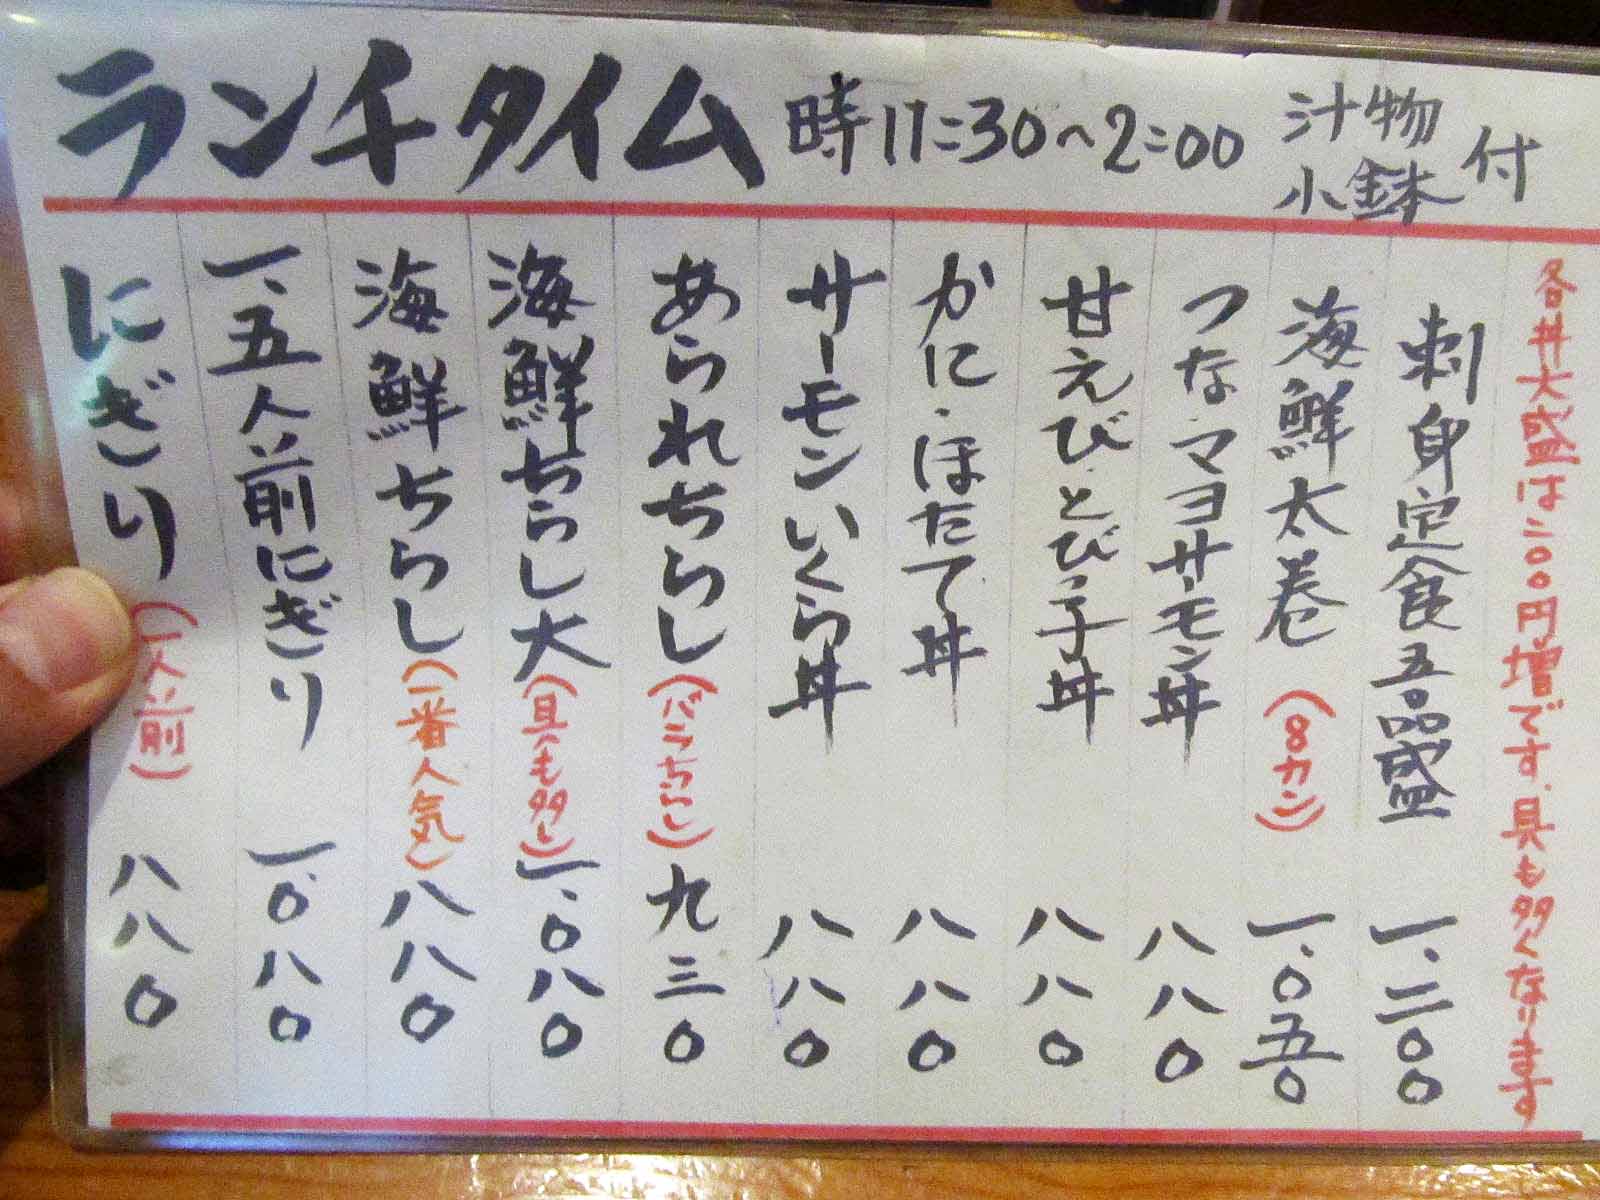 ランチタイム 時11:30〜2:00 汁物 小鉢 付
各丼大盛は二〇〇円増です、具も多くなります
刺身定食五品盛 一、二〇〇
海鮮太巻 (8カン) 一、〇五〇
つな・マヨサーモン丼 八八〇
甘えび・とび子丼 八八〇
かに・ほたて丼 八八〇
サーモンいくら丼 八八〇
あられちらし (バラちらし) 九三〇
海鮮ちらし大 (具も多し) 一、〇八〇
海鮮ちらし (一番人気) 八八〇
一、五人前にぎり 一、〇八〇
にぎり (一人前) 八八〇